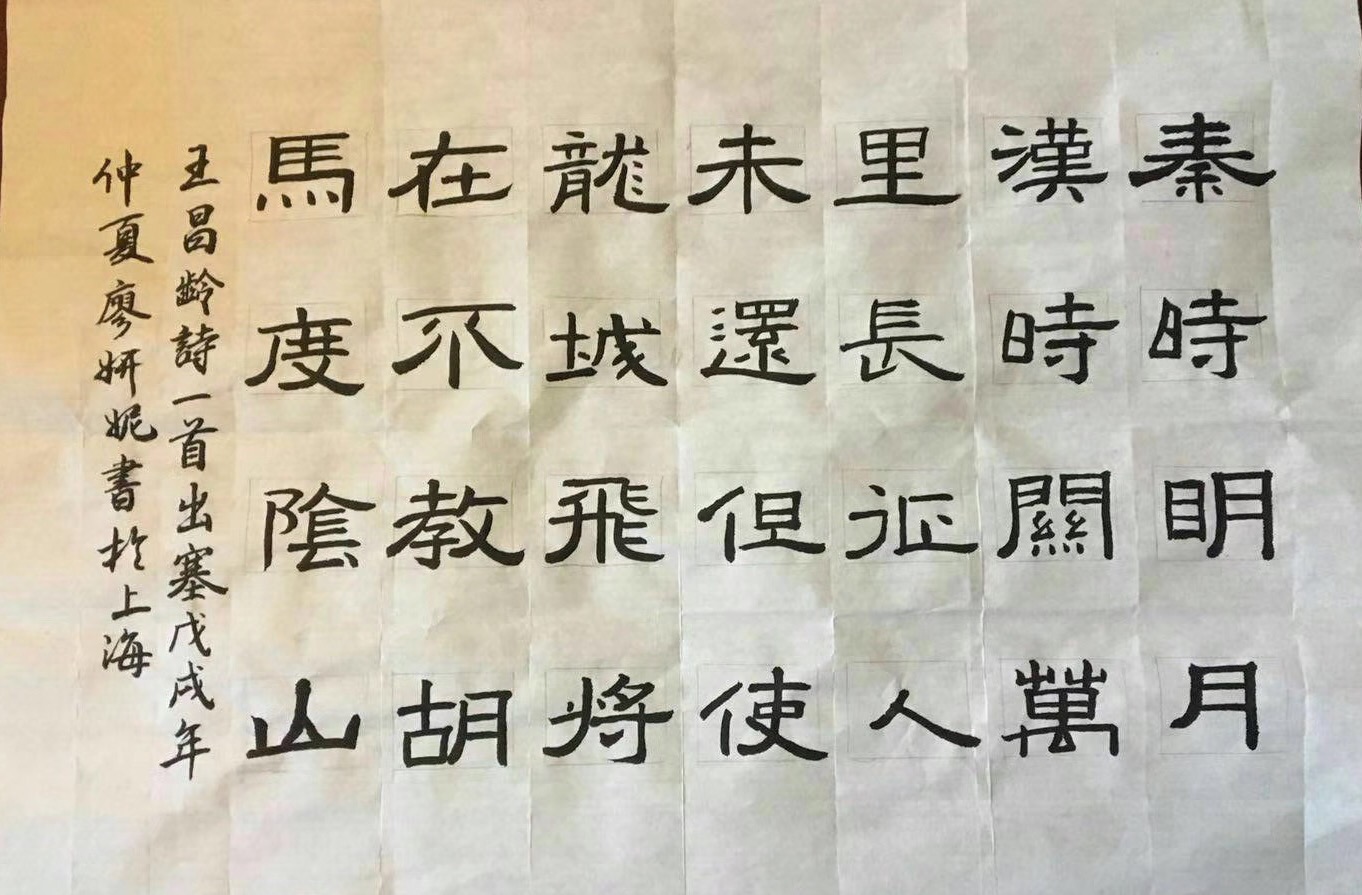 秦時明月
漢時關萬
里長征人
未還但使
龍城飛將
在不教胡
馬度陰山
王昌齡詩一首出塞戊戌年
仲夏廖妍妮書於上海